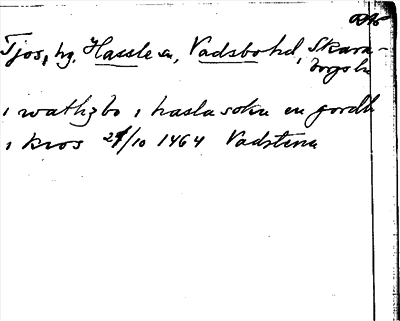 Tjos, hg. Hassle sn, Vadsbo hd, Skara-
borgs l.
i wathzbo i hasla sokn en gordh
i kios 29/10 1464 Vadstena